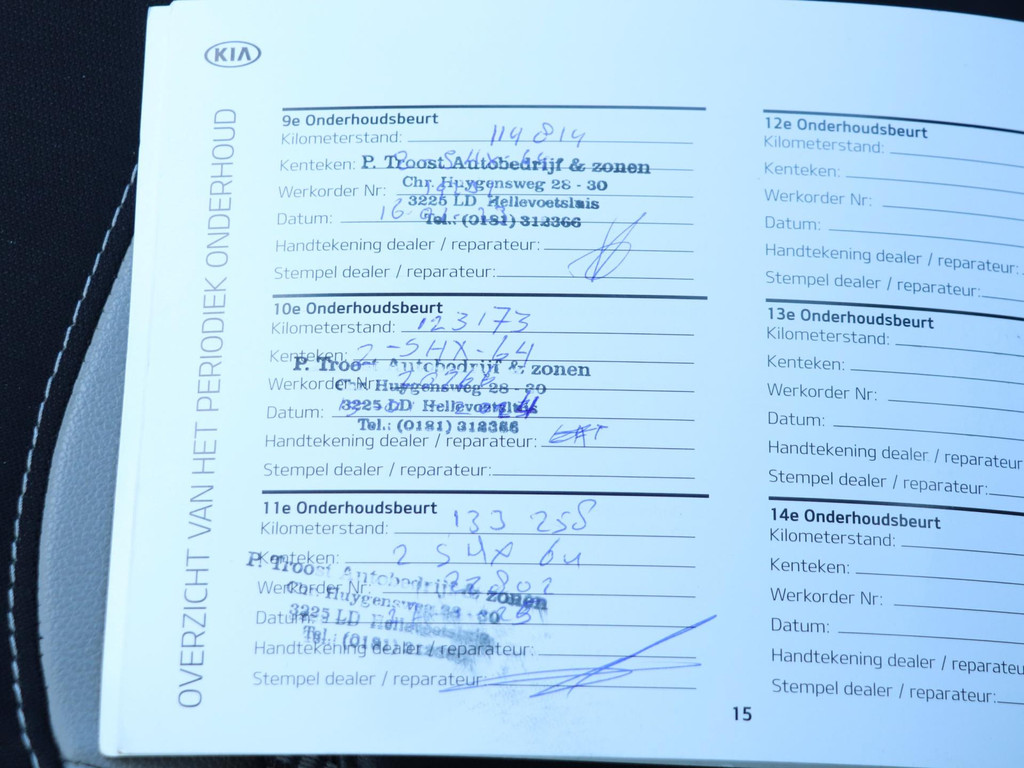 KIA
OVERZICHT VAN HET PERIODIEK ONDERHOUD
9e Onderhoudsbeurt
Kilometerstand: 114 814
Kenteken:
P. Troost Autobedrijf & zonen
Werkorder Nr:
Chr. Huygensweg 28 - 30
3225 LD Hellevoetsluis
Datum: 16-
Tel.: (0181) 312366
Handtekening dealer / reparateur:
Stempel dealer / reparateur:
10e Onderhoudsbeurt
Kilometerstand: 123173
Kenteken: 2-SHX-64
P. Troost Autobedrijf & zonen
Werkorder Nr:
Chr. Huygensweg 28 - 30
Datum:
3225 LD Hellevoetsluis
Tel.: (0181) 312366
Handtekening dealer / reparateur:
Stempel dealer / reparateur:
11e Onderhoudsbeurt
Kilometerstand: 133 258
Kenteken: 2 SHX 64
P. Troost Autobedrijf & zonen
Werkorder Nr: 22802
Chr. Huygensweg 28 - 30
Datum:
3225 LD Hellevoetsluis
Tel.: (0181)
Handtekening dealer / reparateur:
Stempel dealer / reparateur:
12e Onderhoudsbeurt
Kilometerstand:
Kenteken:
Werkorder Nr:
Datum:
Handtekening dealer / reparateur:
Stempel dealer / reparateur:
13e Onderhoudsbeurt
Kilometerstand:
Kenteken:
Werkorder Nr:
Datum:
Handtekening dealer / reparateur
Stempel dealer / reparateur:
14e Onderhoudsbeurt
Kilometerstand:
Kenteken:
Werkorder Nr:
Datum:
Handtekening dealer / reparateu
Stempel dealer / reparateur:
15